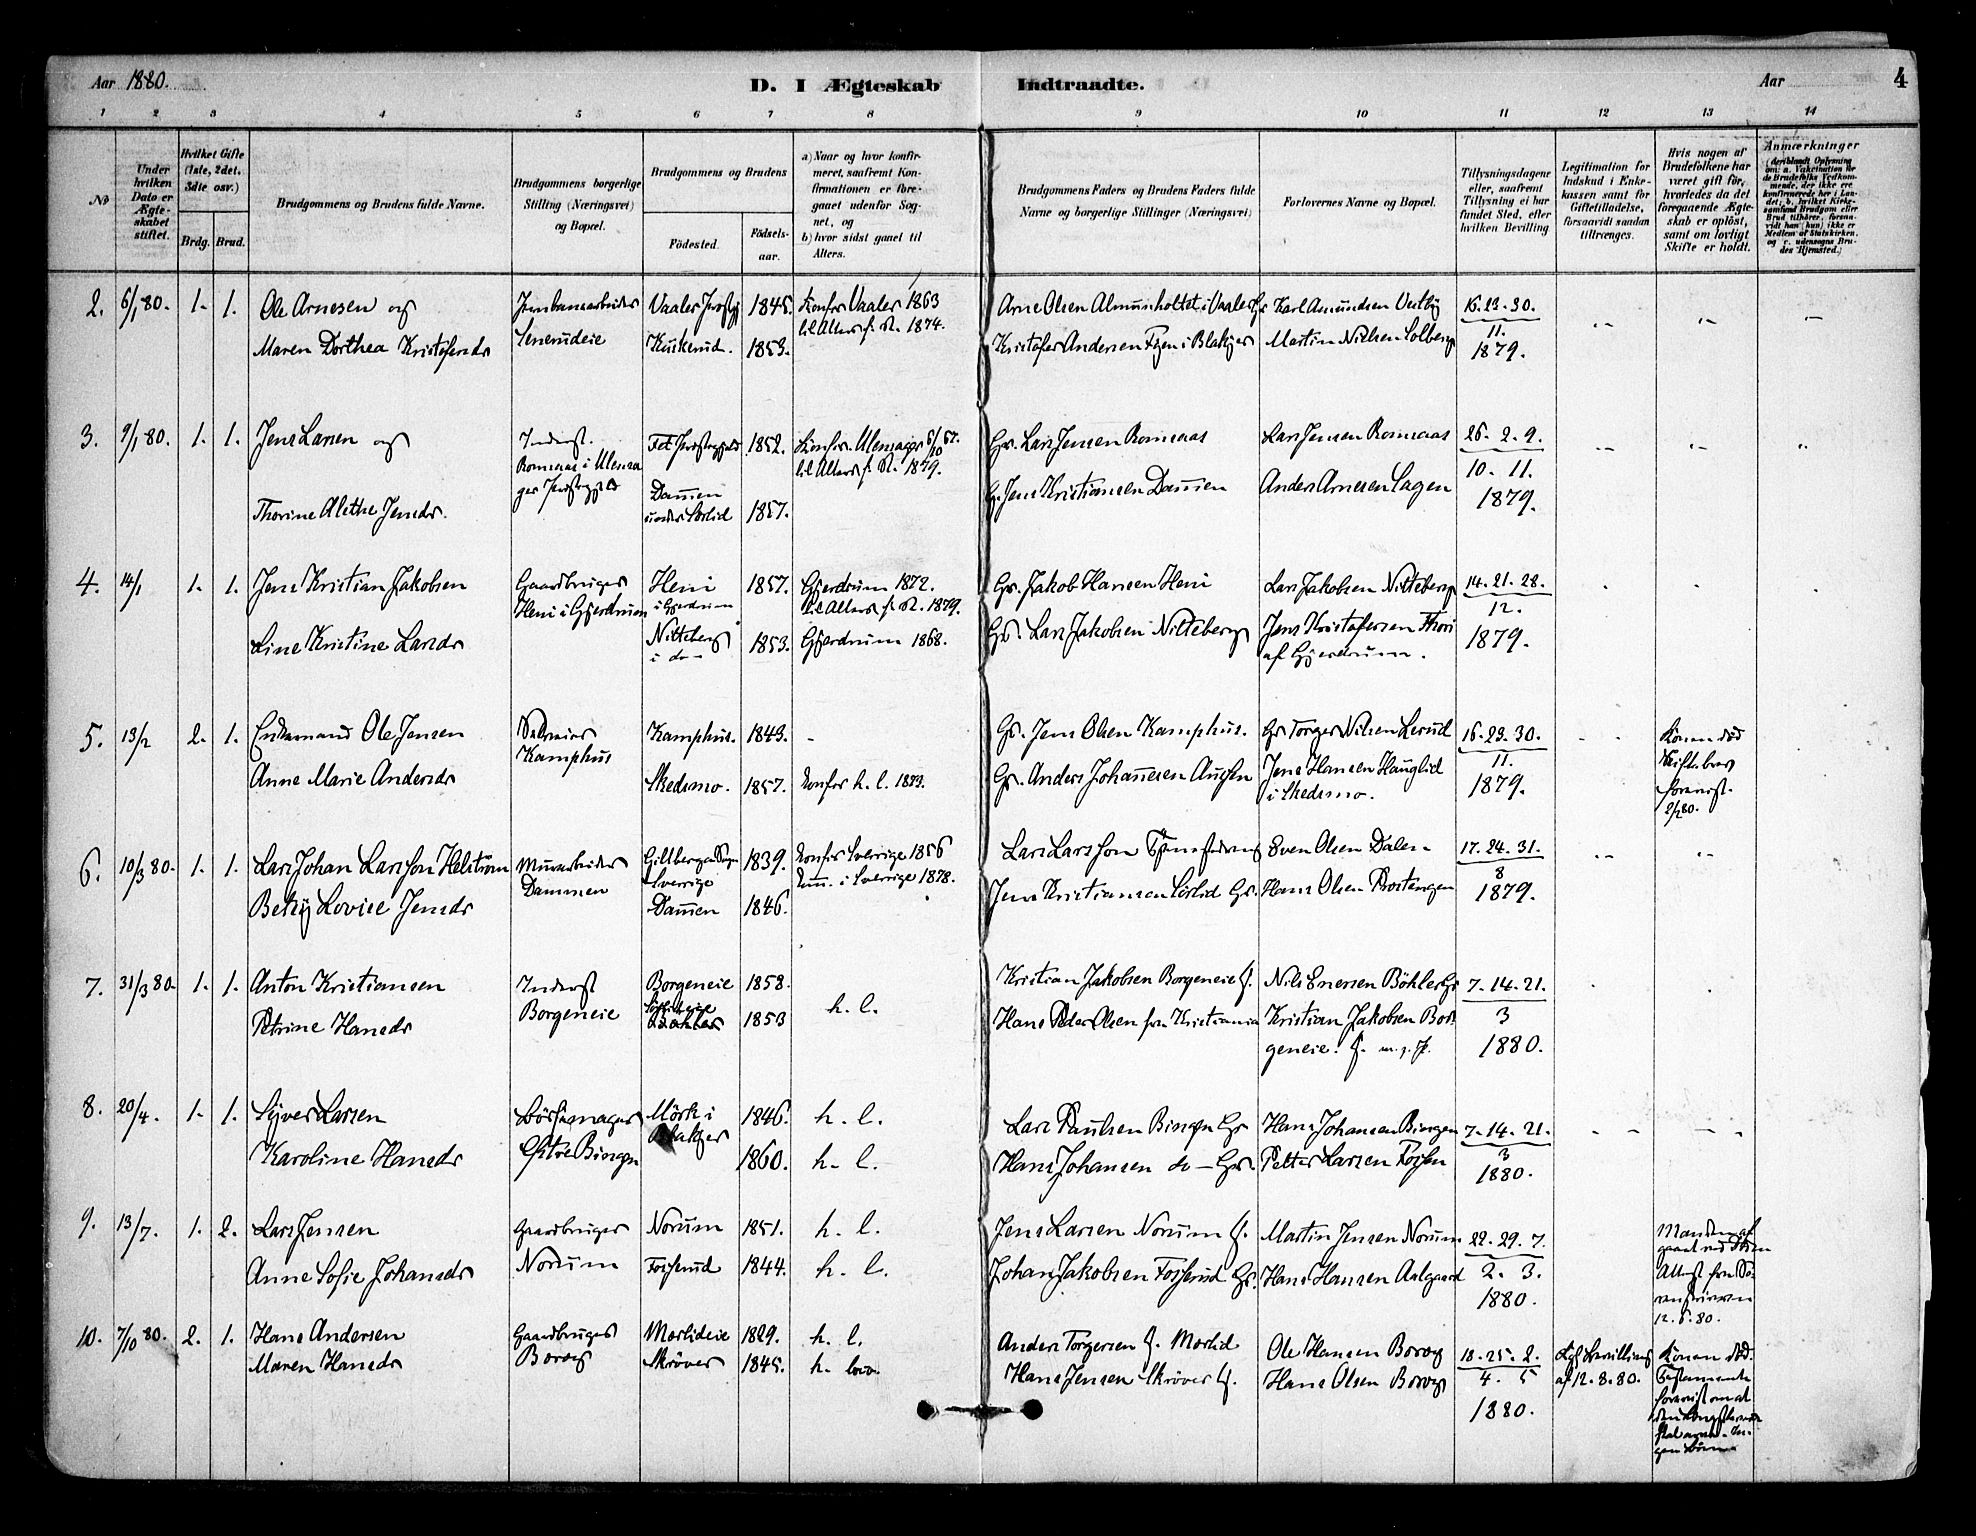 Aar 1880.
D. I Ægteskab Indtraadte.
Aar
4
1 2 3 4 5 6 7 8 9 10 11 12 13 14
No
Under hvilken Dato er Ægteskabet stiftet.
Hvilket Gifte (1ste, 2det, 3dte osv.)
Brdg. Brud.
Brudgommens og Brudens fulde Navne.
Brudgommens borgerlige Stilling (Næringsvei) og Bopæl.
Brudgommens og Brudens
Födested. Födselsaar.
a) Naar og hvor konfirmeret, saafremt Konfirmationen er foregaaet udenfor Sognet, og
b) hvor sidst gaaet til Alters.
Brudgommens Faders og Brudens Faders fulde Navne og borgerlige Stillinger (Næringsvei)
Forlovernes Navne og Bopæl.
Tillysningsdagene eller, saafremt Tillysning ei har fundet Sted, efter hvilken Bevilling
Legitimation for Indskud i Enkekassen samt for Giftetilladelse, forsaavidt sandan tiltrænges.
Hvis nogen af Brudefolkene har været gift før, hvorledes da det foregaaende Ægteskab er oplöst, samt om lovligt Skifte er holdt.
Anmærkninger
2. 6/1 80. 1. 1. Ole Arnesen og Jernbanearbeider Vaaler 1845. Konfr. Vaaler 1863 Arne Olsen Almunholtet i Vaaler Gr. Karl Amundsen Vestby 16. 23. 30.
til Alters f. R. 1874.
Maren Dorthea Kristofersdr Kuskerud. 1853. Kristofer Andersen i Blakjer Martin Nielsen Solberg 11.
1879.
3. 9/1 80. 1. 1. Jens Larsen og Inderst. Fet 1852. Konfr. Ulensager 6/10 67. Gr. Lars Jensen Romsaas Lars Jensen Romsaas 26. 2. 9.
Romsaas i Ulensa til Alters f. R. 1879.
ger Dammen G. Jens Kristiansen Dammen Anders Arnesen Lagen 10. 11.
Thorine Alethe Jensdr. under Sörlid 1857. 1879.
4. 14/1 1. 1. Jens Kristian Jakobsen Gaardbruger Heni 1857. Gjerdrum 1872. Gr. Jakob Hansen Heni Lars Jakobsen Nitteberg 14. 21. 28.
Heni i Gjerdrum i Gjerdrum til Alters f. R. 1879. 12.
Line Kristine Larsdr Nitteberg 1853. Gjerdrum 1868. Gr. Lars Jakobsen Nitteberg Jens Kristofersen 1879.
i do af Gjerdrum.
5. 13/2 2. 1. Enkemand Ole Jensen Kamphus. 1843. - Gr. Jens Olsen Kamphus. Gr. Torger Nilsen Lerud 16. 23. 30. Konen död
Kamphus 11. Skiftebrev
Anne Marie Andersdr Skedsmo. 1857. Konfr h. l. 1873. Gr. Anders Johannesen Jens Hansen Hauglid 1879. forevist.
i Skedsmo. 2/2 80.
6. 10/3 80. 1. 1. Lars Johan Larsson Helström Murarbeider 1839. Konfr Sverrige 1856 Lars Larsson Even Olsen Dalen 17. 24. 31.
Dammen Sverrige Kom. i Sverrige 1878. 8
Betsy Lovise Jensdr Dammen 1846. Jens Kristiansen Sörlid Gr. Hans Olsen 1879.
7. 31/3 80. 1. 1. Anton Kristiansen Inderst Borgeneie 1858. Kristian Jakobsen Borgeneie f. Nils Enersen Böhler Gr 7. 14. 21.
Petrine Hansdr Borgeneie 1853 h. l. Hans Peder Olsen fra Kristiania Kristian Jakobsen Bor 3
geneie. 1880.
8. 20/4. 1. 1. Syver Larsen Börsemager Mörk i 1846. h. l. Lars Paulsen Bingen Gr Hans Johansen Bingen 7. 14. 21.
Blakjer 3
Karoline Hansdr Östre Bingen 1860. h. l. Hans Johansen do Gr. Petter Larsen Fossen 1880.
9. 13/7. 1. 2. Lars Jensen Gaardbruger Norum 1851. h. l. Jens Larsen Norum f. Martin Jensen Norum 22. 29. 7. Manden
Anne Sofie Johansdr Norum Fosserud 1844. h. l. Johan Jakobsen Fosserud Gr. Hans Hansen Aalgaard 2. 3. Attest fra
1880. 12. 6. 80.
10. 7/10 80. 2. 1. Hans Andersen Gaardbruger Morlideie 1829. h. l. Anders Torgersen f. Morlid Ole Hansen Boreg 18. 25. 2. Kgl. Bevilling Konen död.
Maren Hansdr Boreg Skröver 1845. h. loco Hans Jensen Skröver f. Hans Olsen Boreg 4. 5 af 12. 8. 80. Testamente
1880. forevist om at